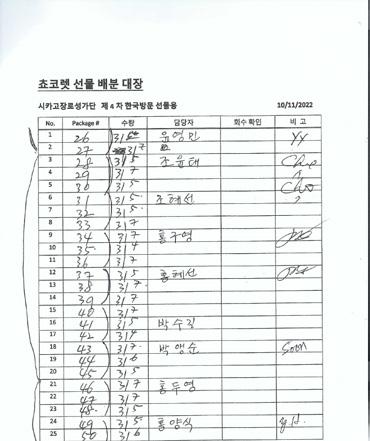 쵸코렛 선물 배분 대장
시카고장로성가단 제 4 차 한국방문 선물용 10/11/2022
No. Package # 수량 담당자 회수 확인 비 고
1 26 윤영민
2 27 317
3 28 315 조윤태 Cho
4 29 317
5 30 315 Cho
6 31 315 조혜선
7 32 315
8 33 317
9 34 317 홍구영
10 35 314
11 36 317
12 37 315 홍혜선
13 38 317
14 39 317
15 40 317
16 41 315 박수길
17 42 314
18 43 317 박앵순 Soon
19 44 316
20 45 315
21 46 317 홍두영
22 47 317
23 48 315
24 49 315 홍양식
25 50 316